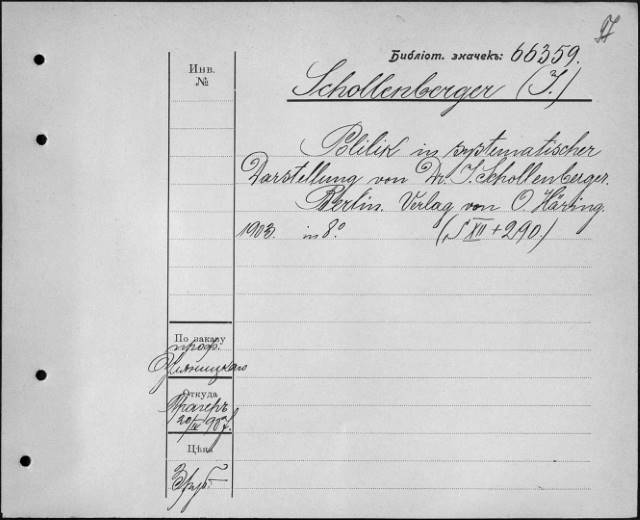 Библіот. значекъ: 66359.
Инв.
№
Schollenberger (J.)
Politik in systematischer
Darstellung von Dr. J. Schollenberger.
Berlin. Verlag von O. Häring.
1903. in 8º. (S XII + 290.)
По заказу
проф.
Откуда
Трагеръ
20/IX 907.
Цѣна
3 руб